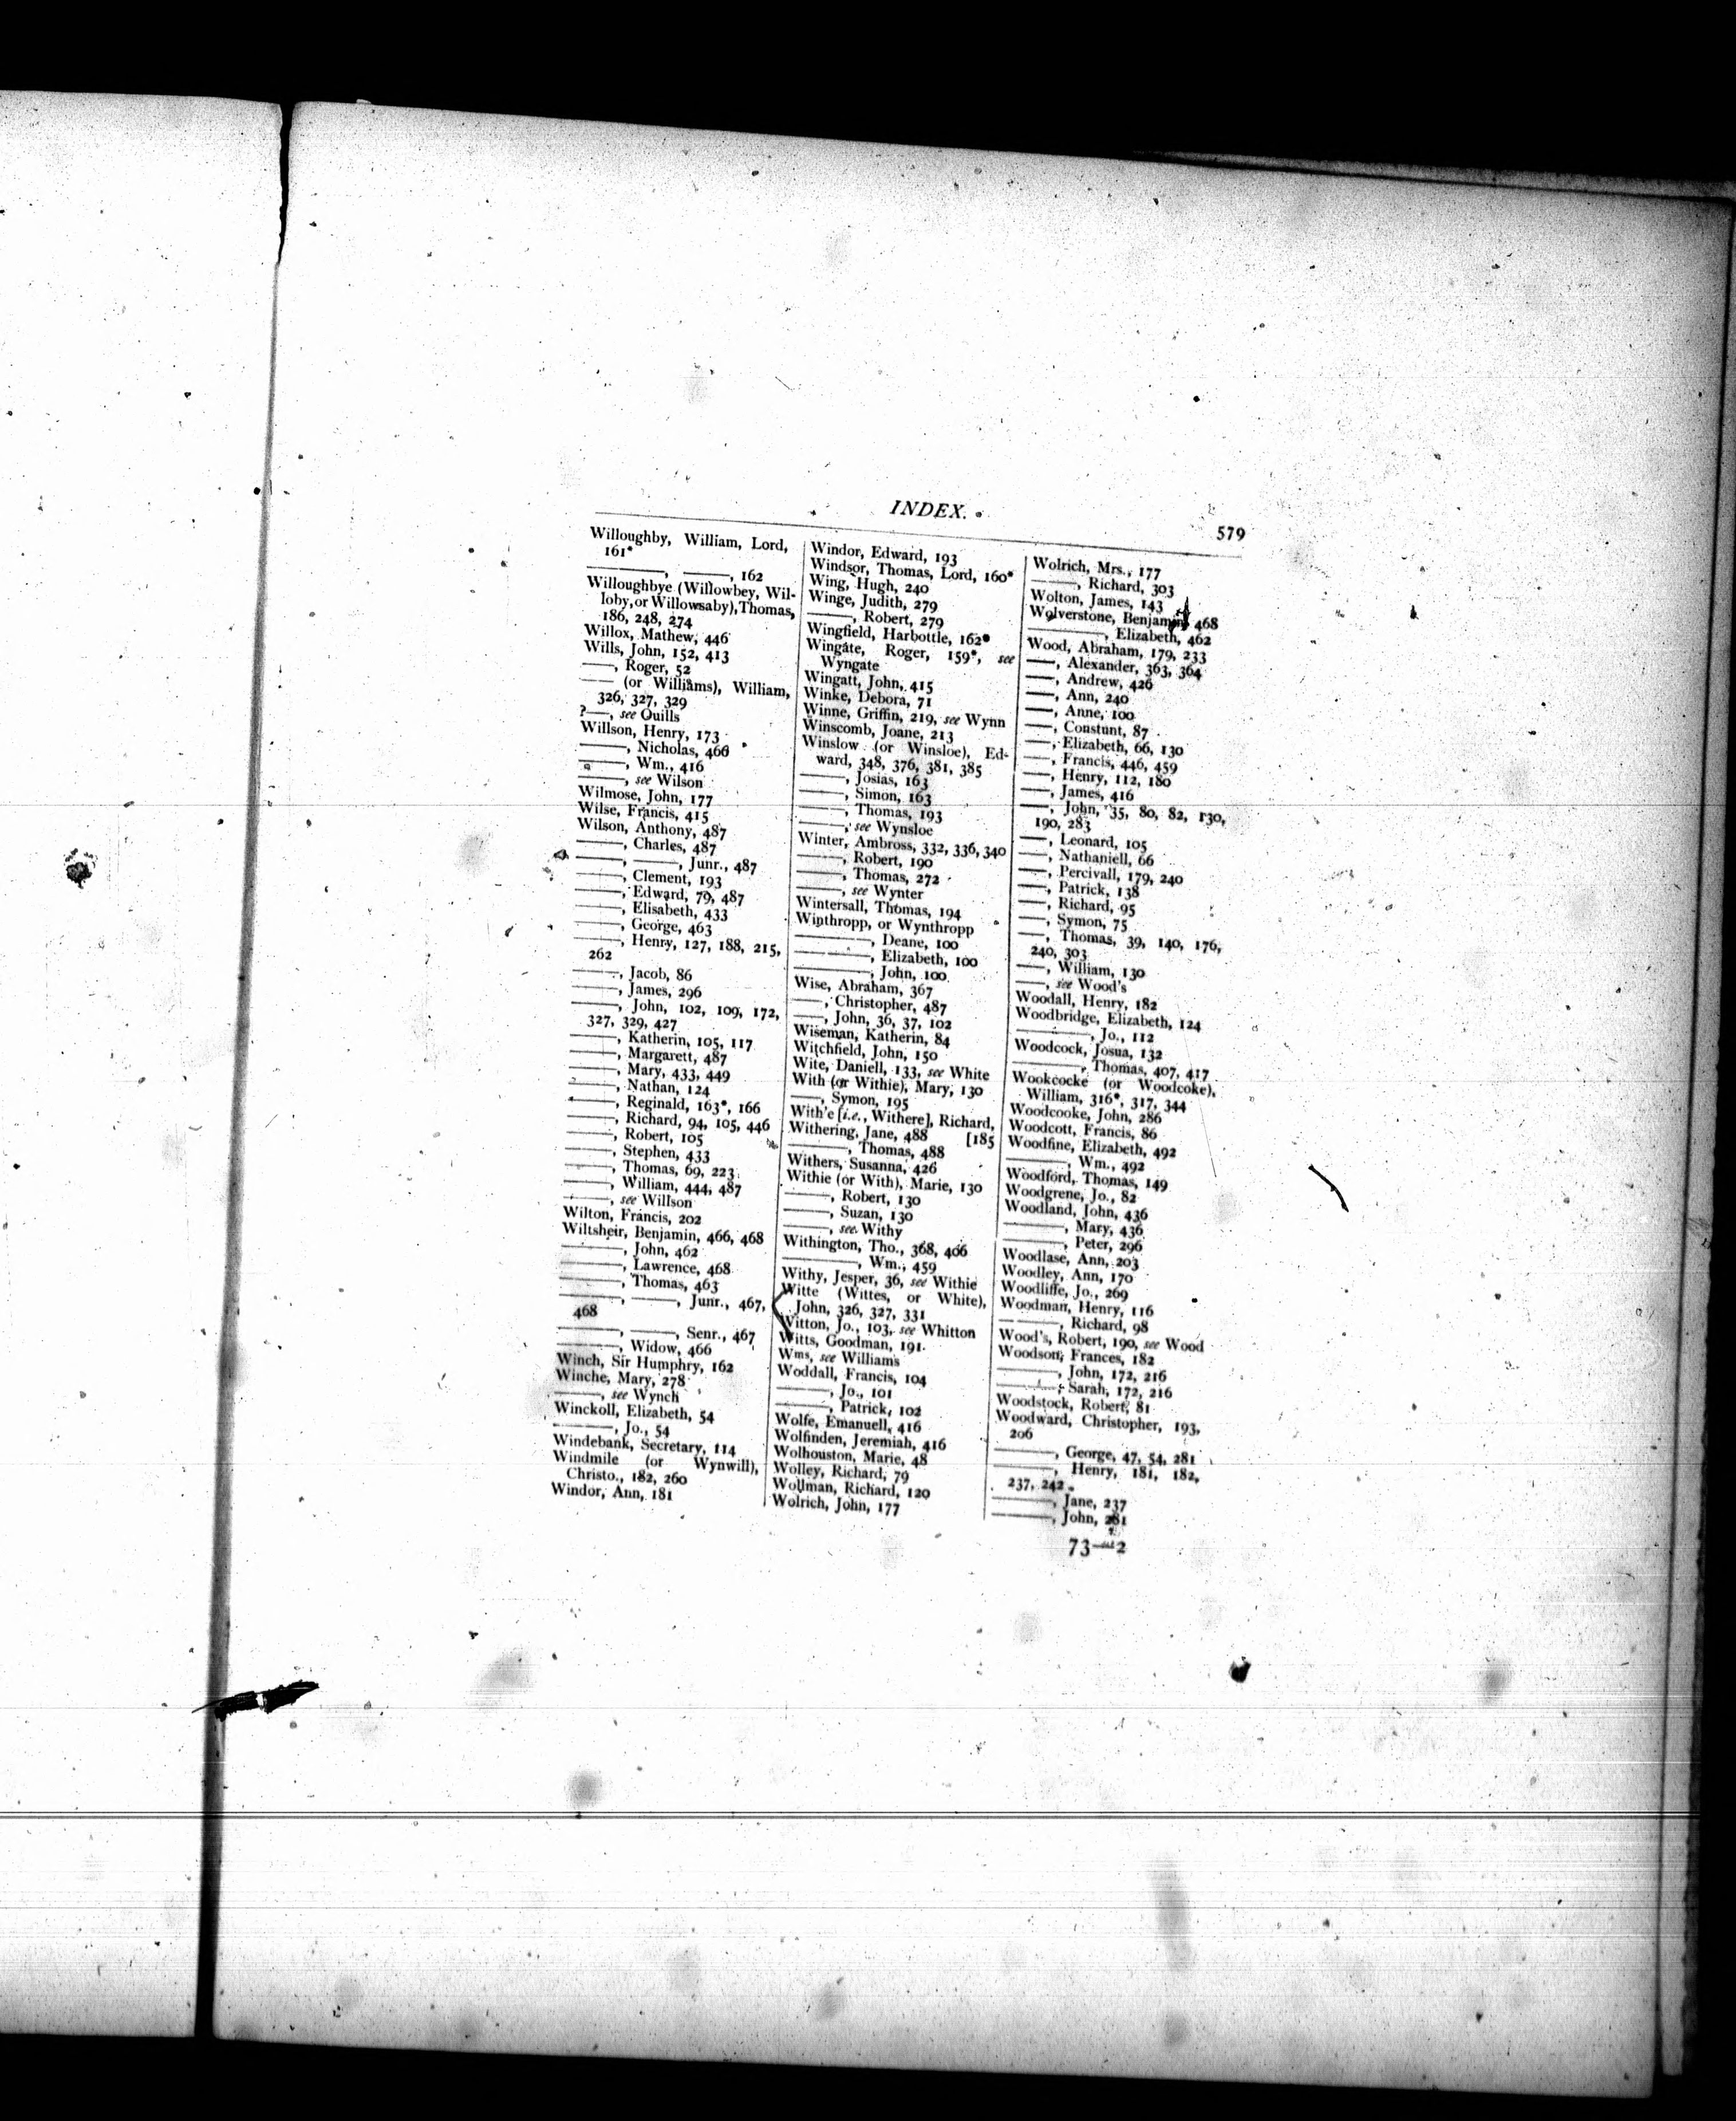 INDEX.
579
Willoughby, William, Lord,
161*
———, ———, 162
Willoughbye (Willowbey, Wil-
loby, or Willowsaby), Thomas,
186, 248, 274
Willox, Mathew, 446
Wills, John, 152, 413
———, Roger, 52
——— (or Williams), William,
326, 327, 329
?———, see Ouills
Willson, Henry, 173
———, Nicholas, 466
———, Wm., 416
———, see Wilson
Wilmose, John, 177
Wilse, Francis, 415
Wilson, Anthony, 487
———, Charles, 487
———, ———, Junr., 487
———, Clement, 193
———, Edward, 79, 487
———, Elisabeth, 433
———, George, 463
———, Henry, 127, 188, 215,
262
———, Jacob, 86
———, James, 296
———, John, 102, 109, 172,
327, 329, 427
———, Katherin, 105, 117
———, Margarett, 487
———, Mary, 433, 449
———, Nathan, 124
———, Reginald, 163*, 166
———, Richard, 94, 105, 446
———, Robert, 105
———, Stephen, 433
———, Thomas, 69, 223
———, William, 444, 487
———, see Willson
Wilton, Francis, 202
Wiltsheir, Benjamin, 466, 468
———, John, 462
———, Lawrence, 468
———, Thomas, 463
———, ———, Junr., 467,
468
———, ———, Senr., 467
———, Widow, 466
Winch, Sir Humphry, 162
Winche, Mary, 278
———, see Wynch
Winckoll, Elizabeth, 54
———, Jo., 54
Windebank, Secretary, 114
Windmile (or Wynwill),
Christo., 182, 260
Windor, Ann, 181
Windor, Edward, 193
Windsor, Thomas, Lord, 160*
Wing, Hugh, 240
Winge, Judith, 279
———, Robert, 279
Wingfield, Harbottle, 162*
Wingate, Roger, 159*, see
Wyngate
Wingatt, John, 415
Winke, Debora, 71
Winne, Griffin, 219, see Wynn
Winscomb, Joane, 213
Winslow (or Winsloe), Ed-
ward, 348, 376, 381, 385
———, Josias, 163
———, Simon, 163
———, Thomas, 193
———, see Wynsloe
Winter, Ambross, 332, 336, 340
———, Robert, 190
———, Thomas, 272
———, see Wynter
Wintersall, Thomas, 194
Winthropp, or Wynthropp
———, Deane, 100
———, Elizabeth, 100
———, John, 100
Wise, Abraham, 367
———, Christopher, 487
———, John, 36, 37, 102
Wiseman, Katherin, 84
Witchfield, John, 150
Wite, Daniell, 133, see White
With (or Withie), Mary, 130
———, Symon, 195
With'e [i.e., Withere], Richard,
Withering, Jane, 488 [185
———, Thomas, 488
Withers, Susanna, 426
Withie (or With), Marie, 130
———, Robert, 130
———, Suzan, 130
———, see Withy
Withington, Tho., 368, 406
———, Wm., 459
Withy, Jesper, 36, see Withie
Witte (Wittes, or White),
John, 326, 327, 331
Witton, Jo., 103, see Whitton
Witts, Goodman, 191
Wms, see Williams
Woddall, Francis, 104
———, Jo., 101
———, Patrick, 102
Wolfe, Emanuell, 416
Wolfinden, Jeremiah, 416
Wolhouston, Marie, 48
Wolley, Richard, 79
Wollman, Richard, 120
Wolrich, John, 177
Wolrich, Mrs., 177
———, Richard, 303
Wolton, James, 143
Wolverstone, Benjamin, 468
———, Elizabeth, 462
Wood, Abraham, 179, 233
———, Alexander, 363, 364
———, Andrew, 426
———, Ann, 240
———, Anne, 100
———, Constunt, 87
———, Elizabeth, 66, 130
———, Francis, 446, 459
———, Henry, 112, 180
———, James, 416
———, John, 35, 80, 82, 130,
190, 283
———, Leonard, 105
———, Nathaniell, 66
———, Percivall, 179, 240
———, Patrick, 138
———, Richard, 95
———, Symon, 75
———, Thomas, 39, 140, 176,
240, 303
———, William, 130
———, see Wood's
Woodall, Henry, 182
Woodbridge, Elizabeth, 124
———, Jo., 112
Woodcock, Josua, 132
———, Thomas, 407, 417
Wookcocke (or Woodcoke),
William, 316*, 317, 344
Woodcooke, John, 286
Woodcott, Francis, 86
Woodfine, Elizabeth, 492
———, Wm., 492
Woodford, Thomas, 149
Woodgrene, Jo., 82
Woodland, John, 436
———, Mary, 436
———, Peter, 296
Woodlase, Ann, 203
Woodley, Ann, 170
Woodliffe, Jo., 269
Woodman, Henry, 116
———, Richard, 98
Wood's, Robert, 190, see Wood
Woodson, Frances, 182
———, John, 172, 216
———, Sarah, 172, 216
Woodstock, Robert, 81
Woodward, Christopher, 193,
206
———, George, 47, 54, 281
———, Henry, 181, 182,
237, 242
———, Jane, 237
———, John, 281
73—2